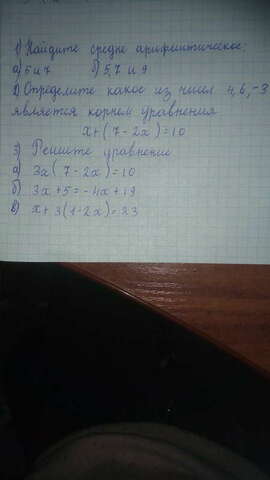 1) Найдите средне арифметическое:
а) 5 и 7 б) 5, 7 и 9
2) Определите какое из чисел 4, 6, -3
является корнем уравнения
x+(7-2x)=10
3) Решите уравнение
а) 3x(7-2x)=10
б) 3x+5=-4x+19
в) x+3(1-2x)=23